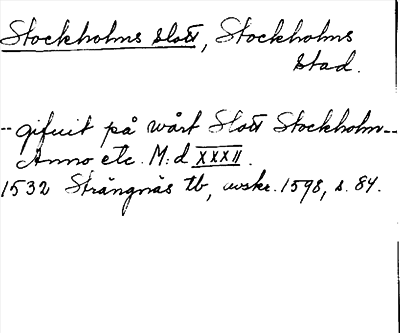 Stockholms slott, Stockholms
stad.
-- gifuit på wårt Slott Stockholm --
Anno etc. M:d XXXII.
1532 Strängnäs tb, avskr. 1598, s. 84.